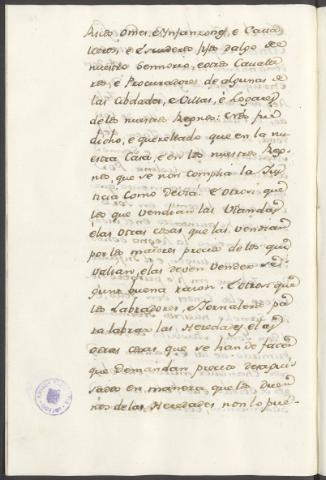 Ricos Omes, é Ynfanzones, é Cava-
lleros, é Escuderos fijos dalgo de
nuestro Sennorio, é otros Cavalle
ros, é Procuradores de algunas de
las cibdades, é Villas, é Logares
de los nuestros Regnos: é nos fue
dicho, é querellado que en la nu
estra Casa, é en los nuestros Reg-
nos, que se non complia la Jus
ticia como devia. é Otrosi que
los que vendian las Viandas
é las otras cosas, que las vendian
por los maiores precios de los que
valian, é las deven vender se
gunt buena razon: é Otrosi que
los Labradores, é Jornaleros pa
ra labrar las Heredades, é las
otras cosas, que se han de facer
que demandan precios desagui
sados en manera, que los Due-
nos de las Heredades non lo pue-